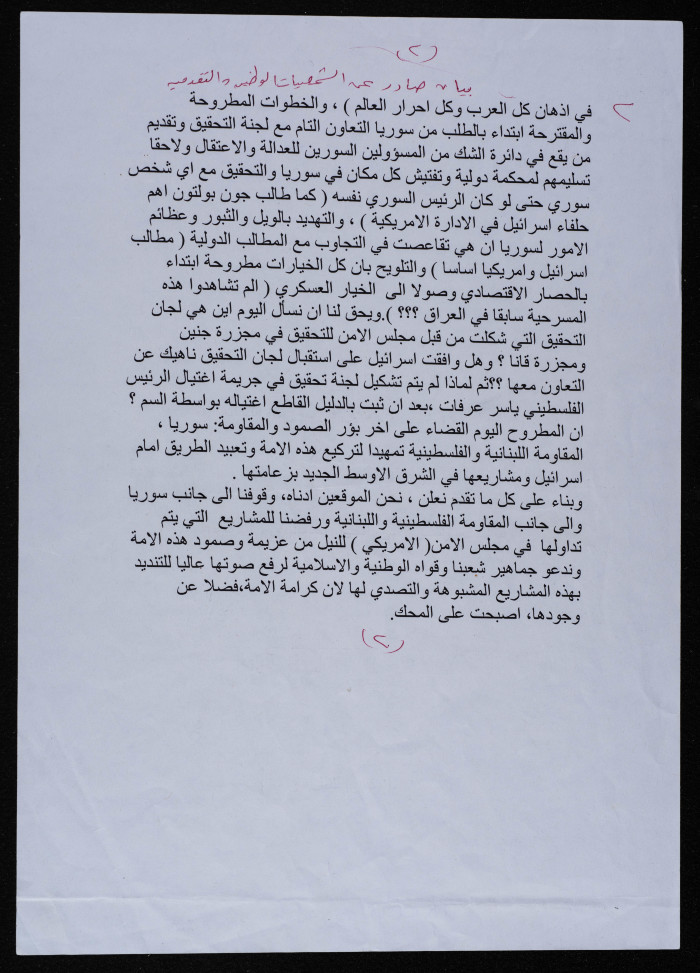 (٢)
بيان صادر عن الشخصيات الوطنية والتقدمية
٢
في اذهان كل العرب وكل احرار العالم ) ، والخطوات المطروحة
والمقترحة ابتداء بالطلب من سوريا التعاون التام مع لجنة التحقيق وتقديم
من يقع في دائرة الشك من المسؤولين السورين للعدالة والاعتقال ولاحقا
تسليمهم لمحكمة دولية وتفتيش كل مكان في سوريا والتحقيق مع اي شخص
سوري حتى لو كان الرئيس السوري نفسه ( كما طالب جون بولتون اهم
حلفاء اسرائيل في الادارة الامريكية ) ، والتهديد بالويل والثبور وعظائم
الامور لسوريا ان هي تقاعصت في التجاوب مع المطالب الدولية ( مطالب
اسرائيل وامريكيا اساسا ) والتلويح بان كل الخيارات مطروحة ابتداء
بالحصار الاقتصادي وصولا الى الخيار العسكري ( الم تشاهدوا هذه
المسرحية سابقا في العراق ؟؟؟ ).ويحق لنا ان نسأل اليوم اين هي لجان
التحقيق التي شكلت من قبل مجلس الامن للتحقيق في مجزرة جنين
ومجزرة قانا ؟ وهل وافقت اسرائيل على استقبال لجان التحقيق ناهيك عن
التعاون معها ؟؟ثم لماذا لم يتم تشكيل لجنة تحقيق في جريمة اغتيال الرئيس
الفلسطيني ياسر عرفات ،بعد ان ثبت بالدليل القاطع اغتياله بواسطة السم ؟
ان المطروح اليوم القضاء على اخر بؤر الصمود والمقاومة: سوريا ،
المقاومة اللبنانية والفلسطينية تمهيدا لتركيع هذه الامة وتعبيد الطريق امام
اسرائيل ومشاريعها في الشرق الاوسط الجديد بزعامتها .
وبناء على كل ما تقدم نعلن ، نحن الموقعين ادناه، وقوفنا الى جانب سوريا
والى جانب المقاومة الفلسطينية واللبنانية ورفضنا للمشاريع التي يتم
تداولها في مجلس الامن( الامريكي ) للنيل من عزيمة وصمود هذه الامة
وندعو جماهير شعبنا وقواه الوطنية والاسلامية لرفع صوتها عاليا للتنديد
بهذه المشاريع المشبوهة والتصدي لها لان كرامة الامة،فضلا عن
وجودها، اصبحت على المحك.
(٢)